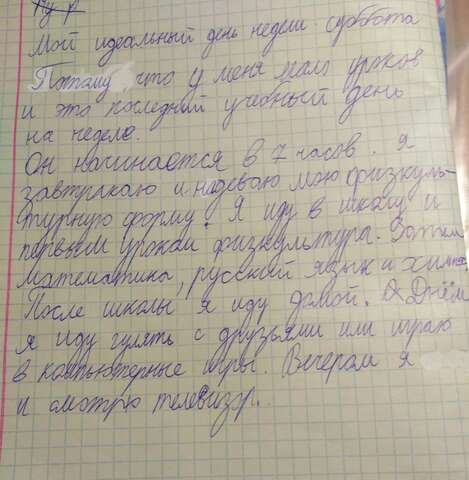 Мой идеальный день недели суббота
Потому что у меня мало уроков
и это последний учебный день
на неделе.
Он начинается в 7 часов. Я
завтракаю и надеваю мою физкуль-
турную форму. Я иду в школу и
первым уроком физкультура. Затем
математика, русский язык и химия
После школы я иду домой. Днём
я иду гулять с друзьями или играю
в компьютерные игры. Вечером я
и смотрю телевизор.